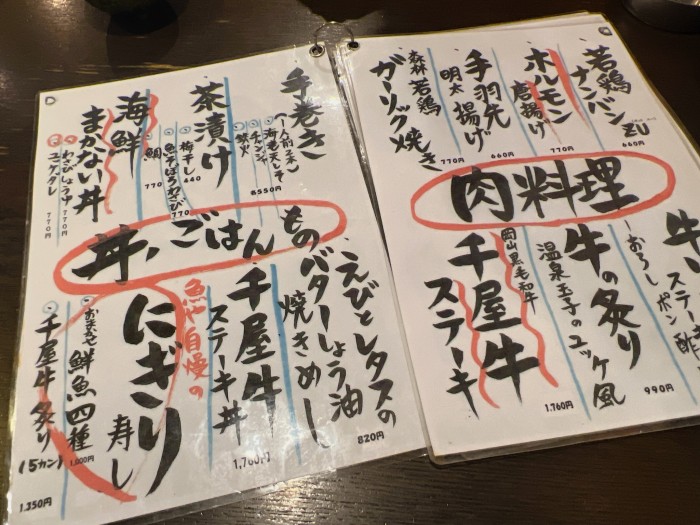 若鶏
ナンバンZU
770円
ホルモン
唐揚げ
660円
手羽先
明太揚げ
770円
森林若鶏
ガーリック焼き
肉料理
牛ステーキ
おろしポン酢
990円
牛の炙り
温泉玉子のユッケ風
1,760円
岡山黒毛和牛
千屋牛
ステーキ
手巻き
(一人前2本)
海老天しそ
チャンジャ
各550円
茶漬け
梅干し 440
魚そぼろわさび 770
鯛 770
海鮮
まかない丼
わさびしょう中 770円
ユッケダレ 770円
丼、ごはんもの
えびとレタスの
バターしょう油
焼きめし
820円
千屋牛
ステーキ丼
1,760円
魚や自慢の
にぎり寿し
おまかせ鮮魚四種
1,000円
千屋牛炙り
(5カン)
1,350円